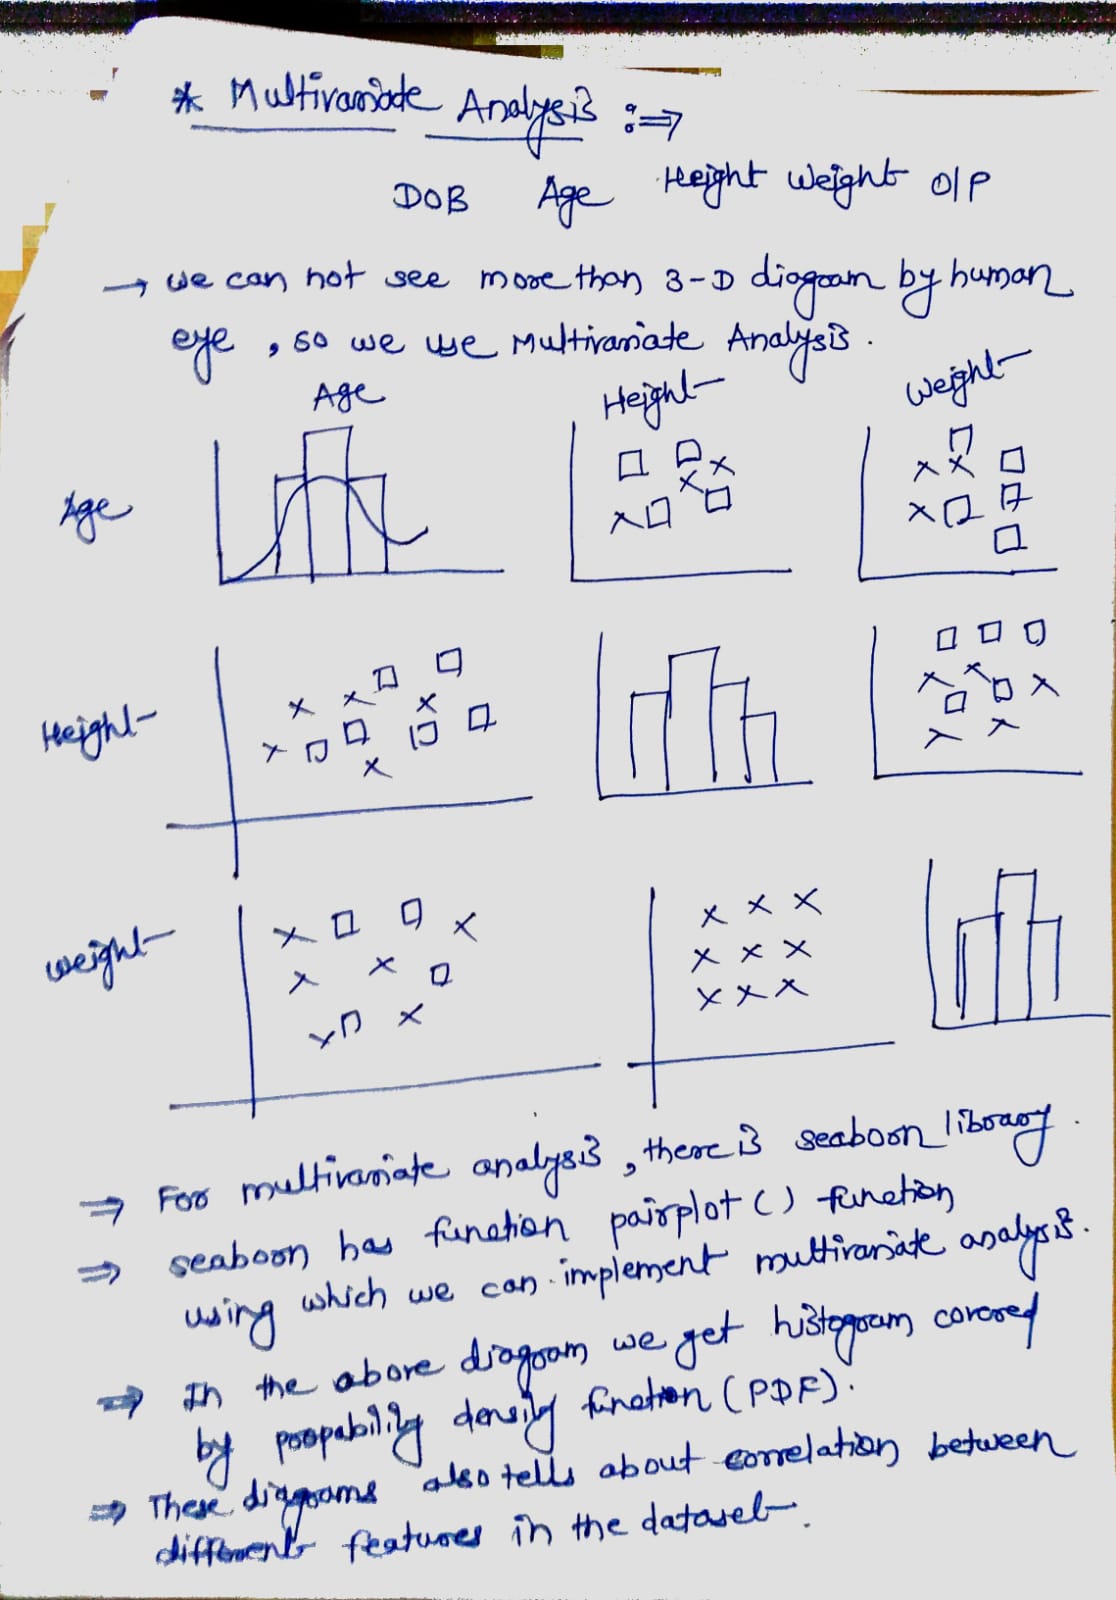 * Multivariate Analysis :⇒
DOB Age Height Weight O/P
→ we can not see more than 3-D diagram by human
eye , so we use Multivariate Analysis .
Age Height Weight
Age
Height
Weight
⇒ For multivariate analysis , there is seaborn library .
⇒ seaborn has function pairplot ( ) function
using which we can implement multivariate analysis .
⇒ In the above diagram we get histogram covered
by propability density function ( PDF ) .
⇒ These diagrams also tells about correlation between
different features in the dataset .